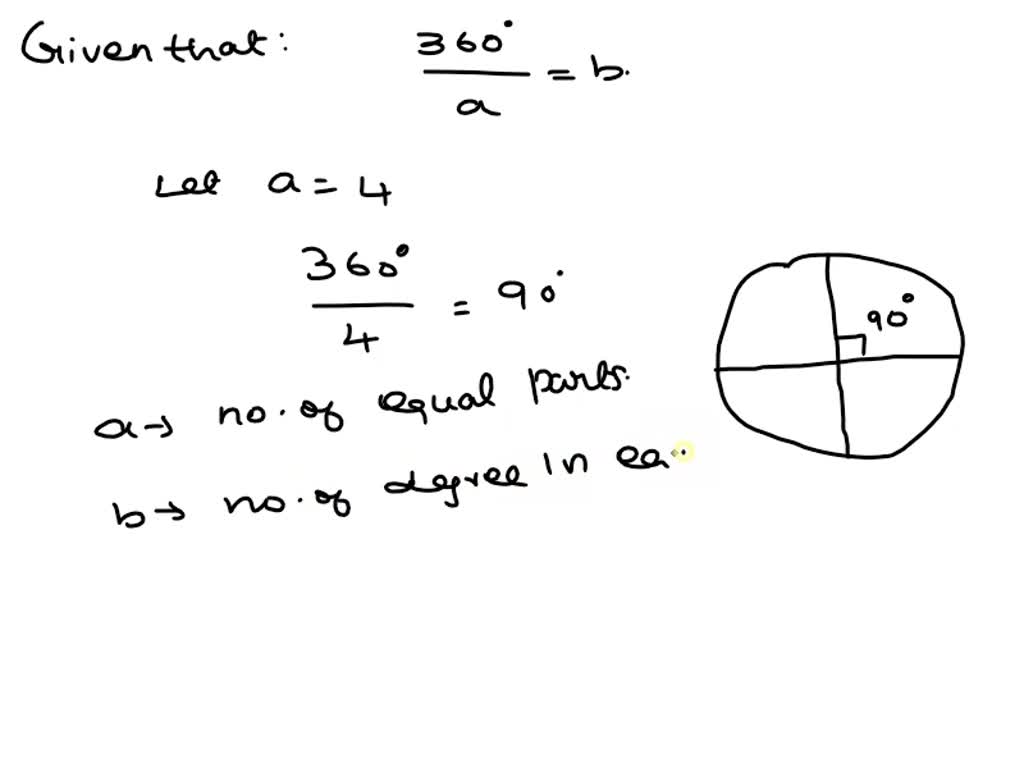 Given that: 360° / a = b.
Let a = 4
360° / 4 = 90°
90°
a → no. of equal parts.
b → no. of degree in ea